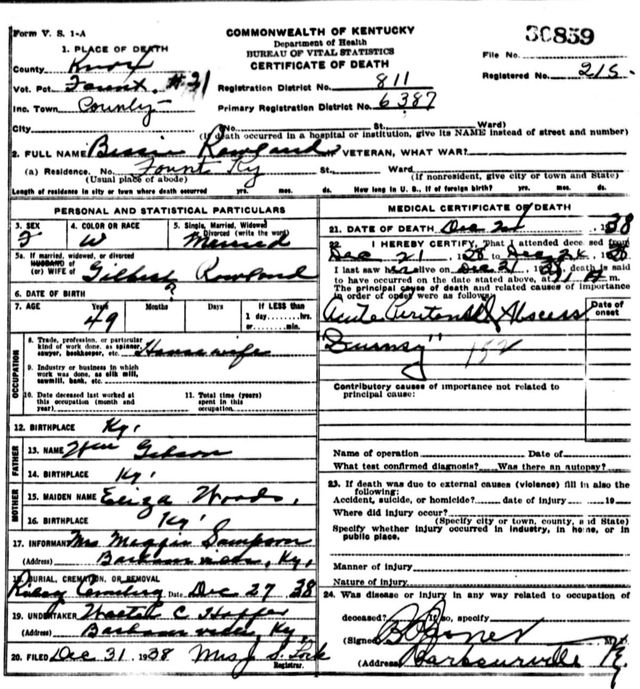 Form V. S. 1-A
COMMONWEALTH OF KENTUCKY
Department of Health
BUREAU OF VITAL STATISTICS
CERTIFICATE OF DEATH
30859
File No.
Registered No. 215-
1. PLACE OF DEATH
County Knox
Vot. Pct. Fount #21
Inc. Town County
Registration District No. 811
Primary Registration District No. 6387
City No. St. Ward)
(If death occurred in a hospital or institution, give its NAME instead of street and number)
2. FULL NAME Bessie Rowland IF VETERAN, WHAT WAR?
(a) Residence, No. Fount Ky St., Ward
(Usual place of abode) (If nonresident, give city or town and State)
Length of residence in city or town where death occurred yrs. mos. ds. How long in U. S., if of foreign birth? yrs. mos. ds.
PERSONAL AND STATISTICAL PARTICULARS
3. SEX
F
4. COLOR OR RACE
W
5. Single, Married, Widowed
or Divorced (write the word)
Married
5a. If married, widowed, or divorced
HUSBAND of
(or) WIFE of Gilbert Rowland
6. DATE OF BIRTH
7. AGE Years Months Days If LESS than
49
1 day,......hrs.
or......min.
OCCUPATION
8. Trade, profession, or particular
kind of work done, as spinner,
sawyer, bookkeeper, etc. House wife
9. Industry or business in which
work was done, as silk mill,
sawmill, bank, etc.
10. Date deceased last worked at
this occupation (month and
year)
11. Total time (years)
spent in this
occupation
12. BIRTHPLACE Ky.
FATHER
13. NAME Wm Gibson
14. BIRTHPLACE Ky.
MOTHER
15. MAIDEN NAME Eliza Woods,
16. BIRTHPLACE Ky.
17. INFORMANT Mrs Sampson
(Address) Barbourville, Ky,
18. BURIAL, CREMATION, OR REMOVAL
Cemetery Date Dec 27 38
19. UNDERTAKER Walter C Hopper
(Address) Barbourville, Ky,
20. FILED Dec 31 1938 Mrs J S. Lock
Registrar.
MEDICAL CERTIFICATE OF DEATH
21. DATE OF DEATH Dec 24 1938
22. I HEREBY CERTIFY, That I attended deceased from
Dec 21 1938 to Dec 24 1938
I last saw her alive on Dec 21 1938, death is said
to have occurred on the date stated above, at 11 A m.
The principal cause of death and related causes of importance
in order of onset were as follows:
Date of
onset
Acute Peritonsillar Abscess
"Quinsy" 152
Contributory causes of importance not related to
principal cause:
Name of operation Date of
What test confirmed diagnosis? Was there an autopsy?
23. If death was due to external causes (violence) fill in also the
following:
Accident, suicide, or homicide? date of injury 19
Where did injury occur?
(Specify city or town, county, and State)
Specify whether injury occurred in industry, in home, or in
public place.
Manner of injury
Nature of injury
24. Was disease or injury in any way related to occupation of
deceased? If so, specify
(Signed) B Jones M. D.
(Address) Barbourville Ky.